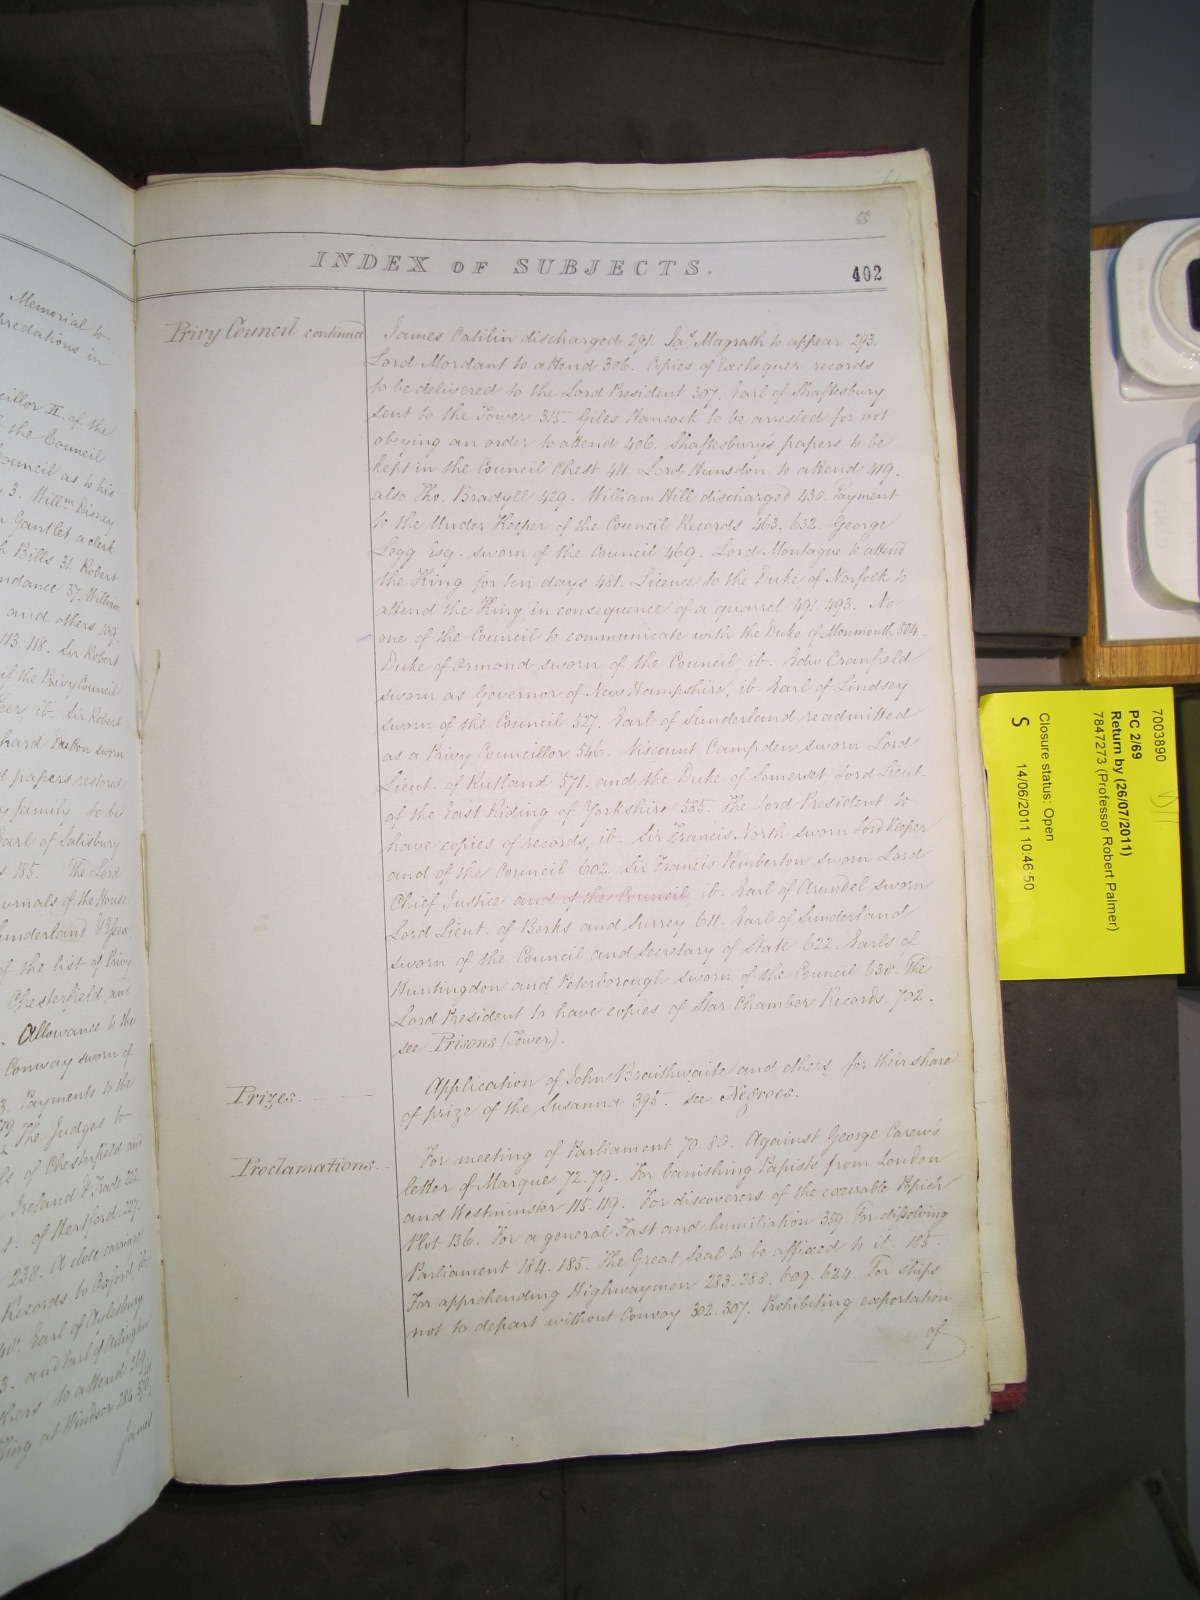 Memorial to
predations in
cillor II. of the
the Council
Council as to his
3. Willm. Disney
Gantlet a clerk
Bills 31. Robert
ndance 37. William
and others 109.
113. 118. Sir Robert
of the Privy Council
ib. Sir Robert
hard Dutton sworn
d papers restored
family to be
Earl of Salisbury
185. The Lord
urnals of the House
underland & Essex
f the list of Privy
Chesterfield, and
Allowance to the
Conway sworn of
3. Payments to the
The Judges to
ls of Chesterfield and
Ireland & Trade 222.
t. of Hertford. 227.
238. A close carriage
Records to Oxford ib.
Earl of Aylesbury
3. and Earl of Arlington
thers to attend
King at Windsor 284.
James
55
INDEX OF SUBJECTS.
402
Privy Council continued
James Catilin discharged 291. Jas. Magrath to appear 293.
Lord Mordant to attend 306. Copies of Exchequer records
to be delivered to the Lord President 307. Earl of Shaftesbury
sent to the Tower 315. Giles Hancock to be arrested for not
obeying an order to attend 406. Shaftesbury's papers to be
kept in the Council Chest 411. Lord Hunsdon to attend 419.
also Tho. Bradyll 429. William Hill discharged 430. Payment
to the Under Keeper of the Council Records 463. 632. George
Legg Esq. sworn of the Council 469. Lord Montague to attend
the King for ten days 481. Licence to the Duke of Norfolk to
attend the King in consequence of a quarrel 491. 493. No
one of the Council to communicate with the Duke of Monmouth 504.
Duke of Ormond sworn of the Council ib. Edw. Cranfield
sworn as Governor of New Hampshire, ib. Earl of Lindsey
sworn of the Council 527. Earl of Sunderland readmitted
as a Privy Councillor 546. Viscount Campden sworn Lord
Lieut. of Rutland 571. and the Duke of Somerset Lord Lieut.
of the East Riding of Yorkshire 585. The Lord President to
have copies of records, ib. Sir Francis North sworn Lord Keeper
and of the Council 602. Sir Francis Pemberton sworn Lord
Chief Justice and of the Council, ib. Earl of Arundel sworn
Lord Lieut. of Berks and Surrey 611. Earl of Sunderland
sworn of the Council and Secretary of State 622. Earls of
Huntingdon and Peterborough sworn of the Council 638. The
Lord President to have copies of Star Chamber Records 702.
see Prisons (Tower).
Prizes.
Application of John Braithwaite and others for their share
of prize of the Susanna 395. see Negroes.
Proclamations.
For meeting of Parliament 70. 80. Against George Carew's
letter of Marque 72. 79. For banishing Papists from London
and Westminster 115. 119. For discoverers of the execrable Popish
Plot 136. For a general Fast and humiliation 359. For dissolving
Parliament 184. 185. The Great Seal to be affixed to it. 185.
For apprehending Highwaymen 283. 288. 609. 624. For ships
not to depart without Convoy 302. 307. Prohibiting exportation
of
7003890
PC 2/69
Return by (26/07/2011)
7847273 (Professor Robert Palmer)
Closure status: Open
S 14/06/2011 10:46:50